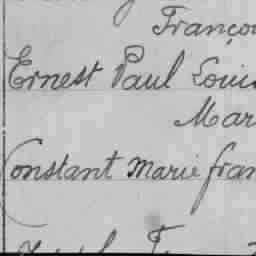 Françoi
Ernest Paul Louis
Mar
Constant Marie fran